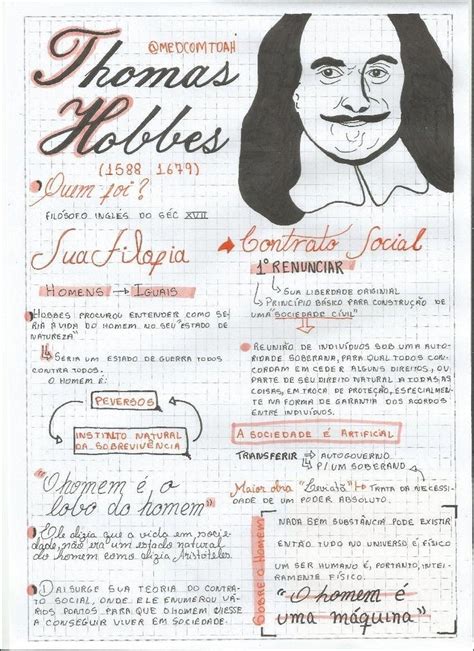 @MEDCOMTOAH
Thomas
Hobbes
(1588 1679)
Quem foi?
FILÓSOFO INGLÊS DO SÉC XVII
Sua Filopia
HOMENS → IGUAIS
HOBBES PROCUROU ENTENDER COMO SE-
RIA A VIDA DO HOMEM NO SEU "ESTADO DE
NATUREZA"
SERIA UM ESTADO DE GUERRA TODOS
CONTRA TODOS.
O HOMEM É:
PEVERSOS
INSTINTO NATURAL
DA SOBREVIVÊNCIA
"O homem é o
lobo do homem"
Ele dizia que a vida em socie-
dade, não era um estado natural
do homem como dizia Aristóteles.
① AI SURGE SUA TEORIA DO CONTRA-
TO SOCIAL, ONDE ELE ENUMEROU VÁ-
RIOS PONTOS PARA QUE O HOMEM VIESSE
A CONSEGUIR VIVER EM SOCIEDADE.
→ Contrato Social
1º RENUNCIAR
SUA LIBERDADE ORIGINIAL
PRINCÍPIO BÁSICO PARA CONSTRUÇÃO DE
UMA "SOCIEDADE CIVIL"
REUNIÃO DE INDIVÍDUOS SOB UMA AUTO-
RIDADE SOBERANA, PARA QUAL TODOS CON-
CORDAM EM CEDER ALGUNS DIREITOS, OU
PARTE DE SEU DIREITO NATURAL A TODAS AS
COISAS, EM TROCA DE PROTEÇÃO, ESPECIALMEN-
TE NA FORMA DE GARANTIA DOS ACORDOS
ENTRE INDIVÍDUOS.
A SOCIEDADE É ARTIFICIAL
TRANSFERIR → AUTOGOVERNO
P/ UM SOBERANO
Maior obra "Leviatã" → TRATA DA NECESSI-
DADE DE UM PODER ABSOLUTO.
SOBRE O HOMEM
NADA SEM SUBSTÂNCIA PODE EXISTIR
ENTÃO TUDO NO UNIVERSO É FÍSICO
UM SER HUMANO É, PORTANTO, INTEI-
RAMENTE FÍSICO.
"O homem é
uma máquina"